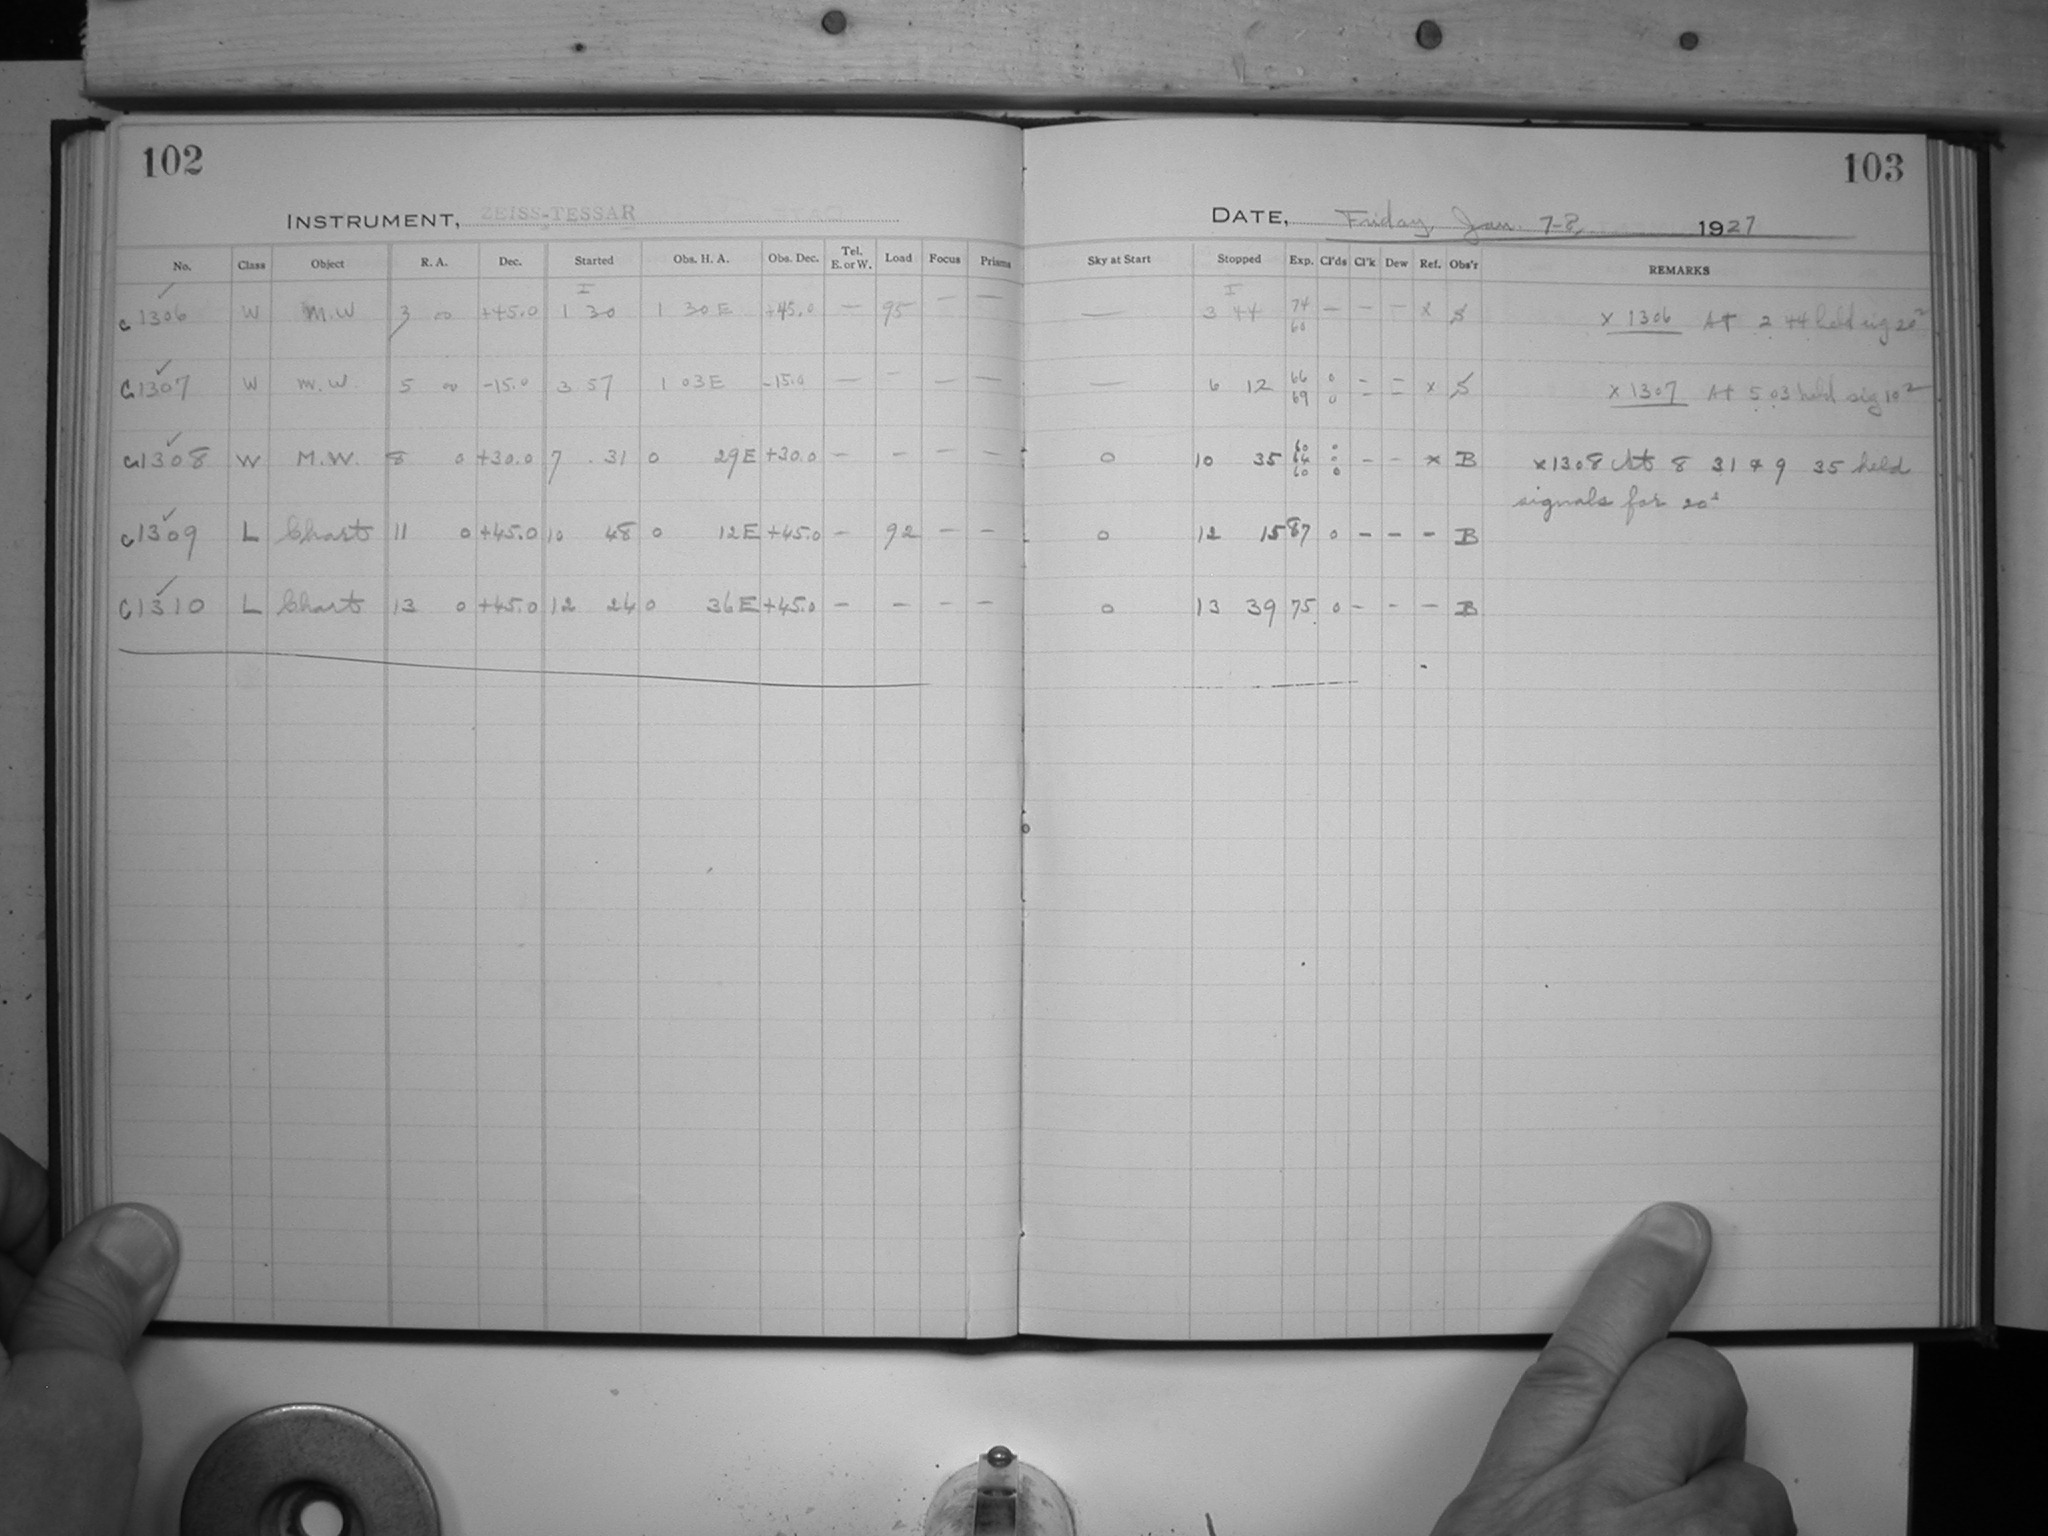 102
INSTRUMENT, ZEISS-TESSAR
No. Class Object R. A. Dec. Started Obs. H. A. Obs. Dec. Tel. E. or W. Load Focus Prisms
I
c 1306 ✓ W M.W 3 00 +45.0 1 30 1 30 E +45.0 — 95 — —
c 1307 ✓ W M.W. 5 00 -15.0 3 57 1 03 E -15.0 — — — —
c 1308 ✓ W M.W. 8 0 +30.0 7 31 0 29 E +30.0 — — — —
c 1309 ✓ L Chart 11 0 +45.0 10 48 0 12 E +45.0 — 92 — —
c 1310 ✓ L Chart 13 0 +45.0 12 24 0 36 E +45.0 — — — —
103
DATE, Friday, Jan. 7-8, 1927
Sky at Start Stopped Exp. Cl'ds Cl'k Dew Ref. Obs'r REMARKS
I
— 3 44 74 — — — x S x 1306 At 2 44 held sig 20s
60
— 6 12 66 0 — — x S x 1307 At 5 03 held sig 10s
69 0 — —
0 10 35 60 0 — — x B x 1308 At 8 31 & 9 35 held
64 0
60 0
signals for 20s
0 12 15 87 0 — — — B
0 13 39 75 0 — — — B